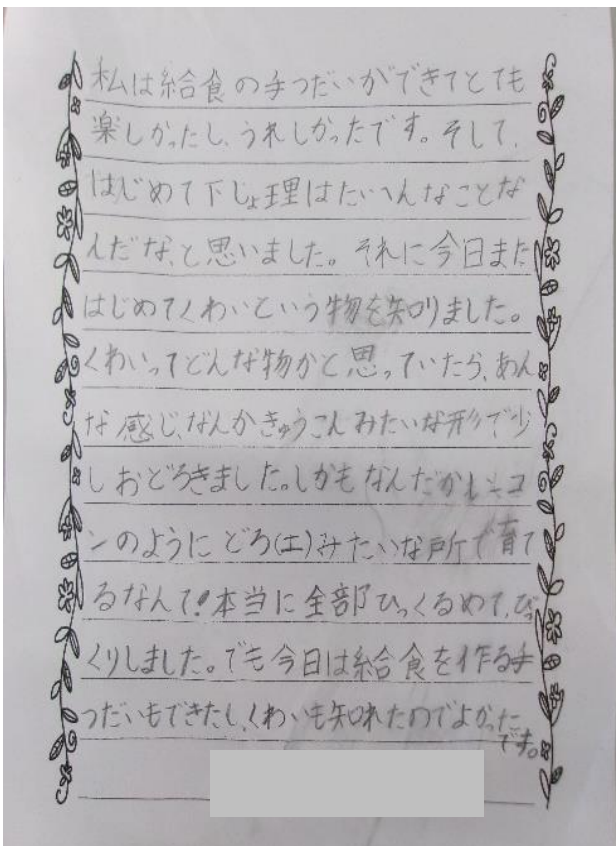 私は給食の手つだいができてとても
楽しかったし、うれしかったです。そして、
はじめて下じょ理はたいへんなことな
んだな、と思いました。それに今日また
はじめてくわいという物を知りました。
くわいってどんな物かと思っていたら、あん
な感じ、なんかきゅうこんみたいな形で少
しおどろきました。しかもなんだかレンコ
ンのようにどろ(土)みたいな所で育て
るなんて!本当に全部ひっくるめて、びっ
くりしました。でも今日は給食を作る手
つだいもできたし、くわいも知れたのでよかった
です。